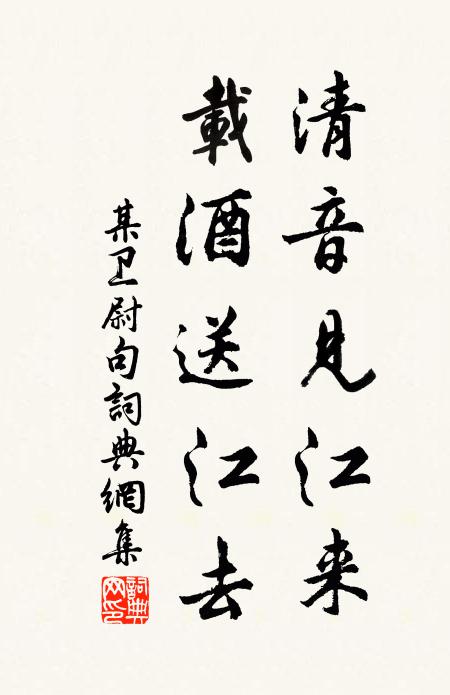 清音見江来
載酒送江去
某卫尉句詞典網集
詞典网印